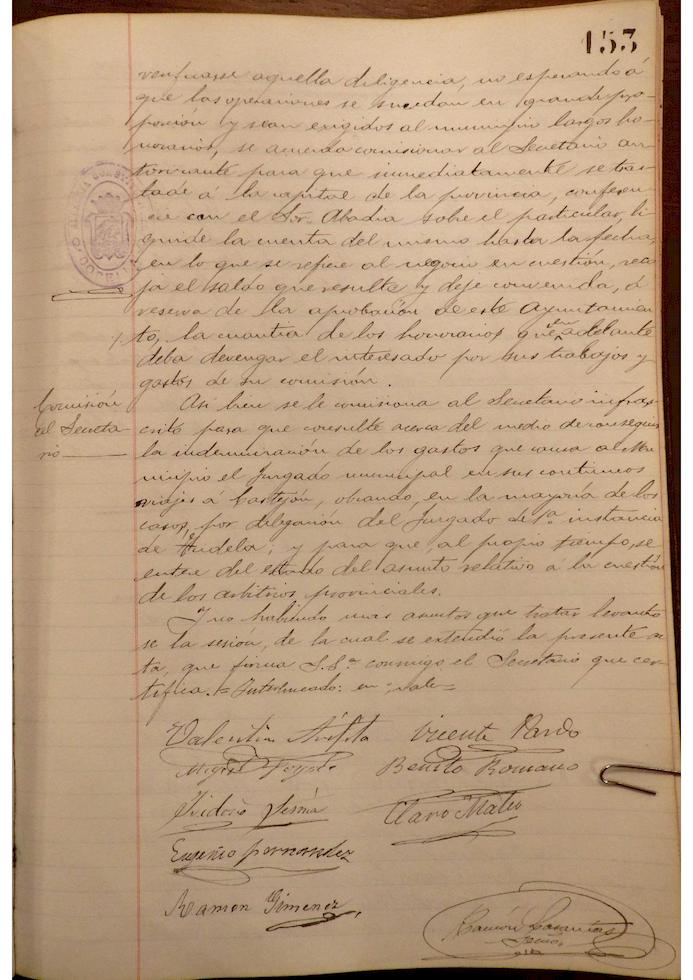 153
aquella diligencia, no esperando á
que las operaciones se sucedan en grande pro-
porcion y sean exigidos al municipio largos ho-
norarios, se acuerda comisionar al Secretario au-
torizante para que inmediatamente se tras-
lade á la capital de la provincia, conferen-
cie con el Sor. Abadia sobre el particular, li-
quide la cuenta del mismo hasta la fecha,
en lo que se refiere al negocio en cuestión, reco-
ja el saldo que resulte y deje convenida, á
reserva de la aprobación de este Ayuntamien-
to, la cuantia de los honorarios que en adelante
deba devengar el interesado por sus trabajos y
gastos de su comisión.
Comisión
al Secreta-
rio
Asi bien se le comisiona al Secretario infras-
crito para que consulte acerca del medio de conseguir
la indemnización de los gastos que causa al Mu-
nicipio el Juzgado municipal en sus continuos
viajes á Castejón, obrando, en la mayoría de los
casos, por delegación del Juzgado de 1ª instancia
de Tudela; y para que, al propio tiempo, se
entere del estado del asunto relativo á la cuestión
de los arbitrios provinciales.
Y no habiendo mas asuntos que tratar levantó-
se la sesion, de la cual se extendió la presente ac-
ta, que firma S.Sª conmigo el Secretario que cer-
tifica. = Interlineado: en = vale =
Valentin Vicente Pardo
Miguel Benito Romano
Isidoro Sesma Claro Mateo
Eugenio Fernandez
Ramon Gimenez
Ramón
Srio.